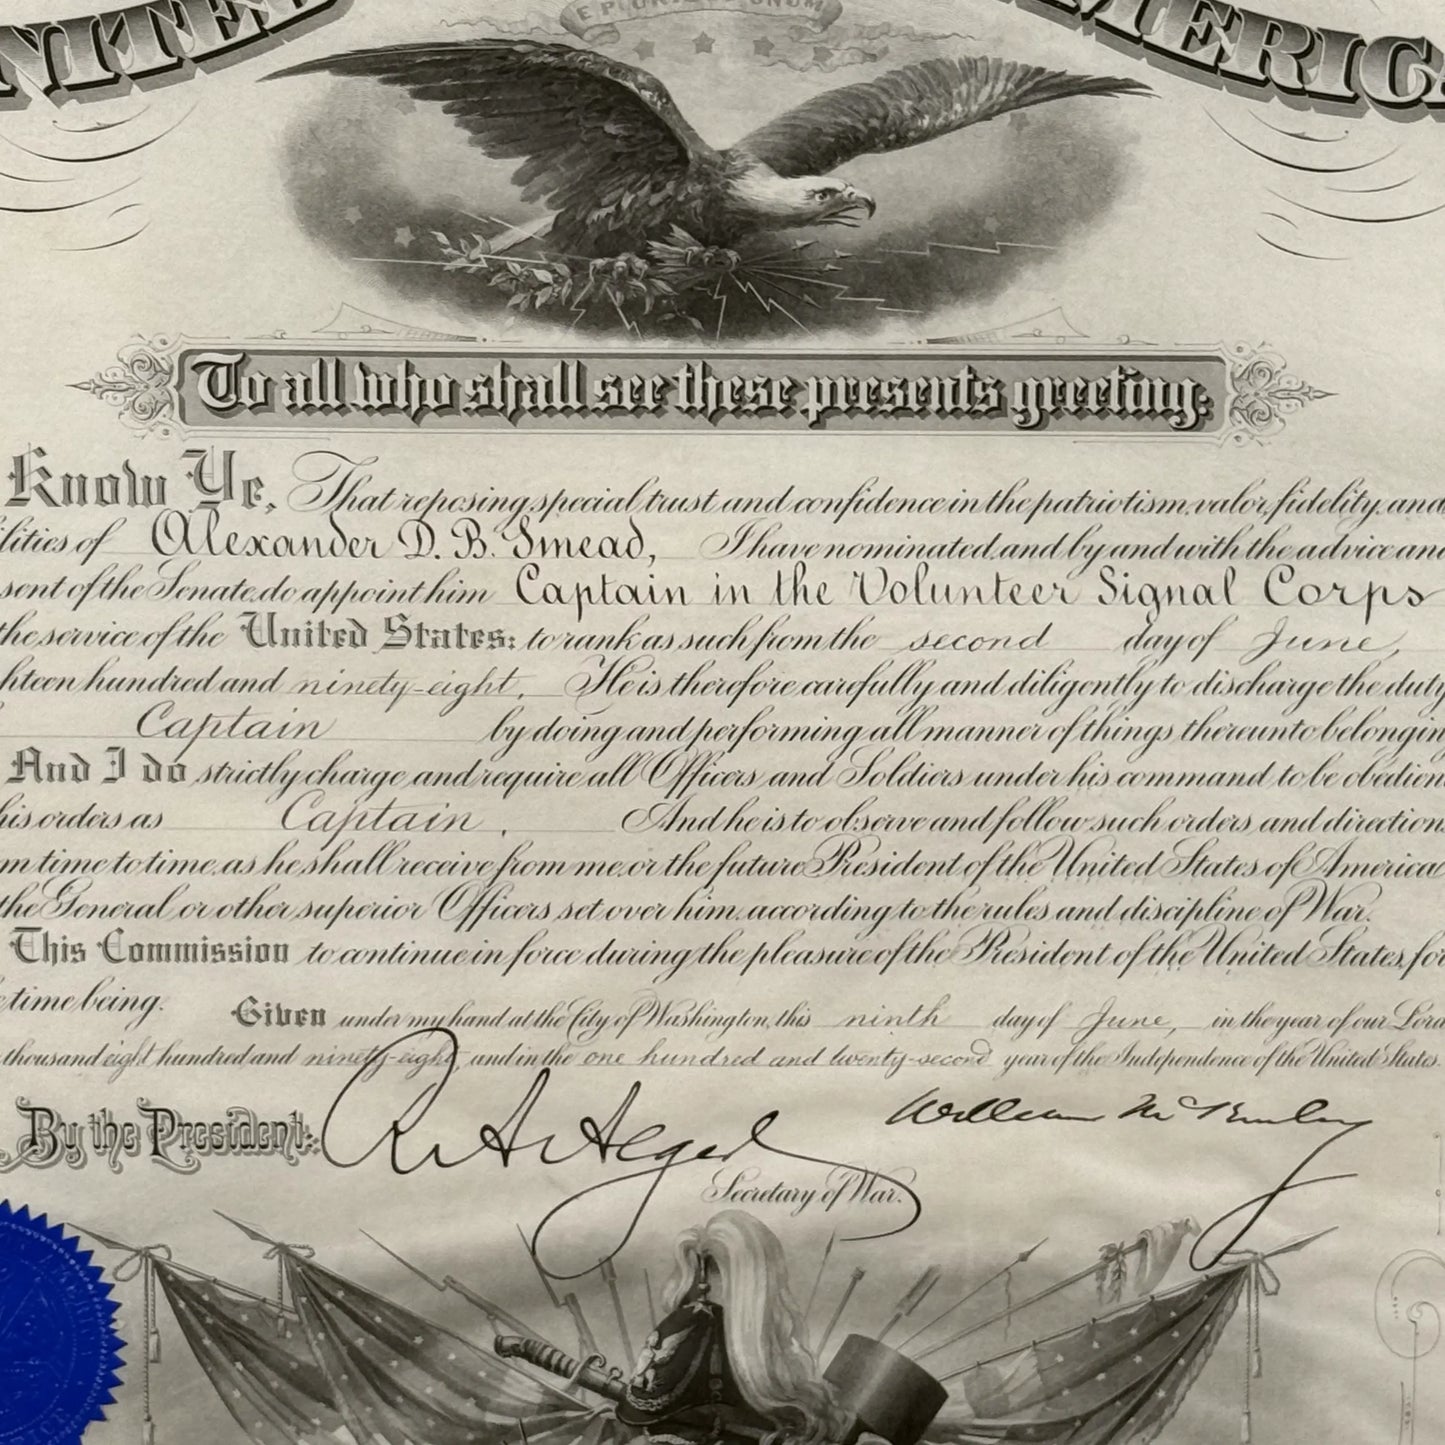 NITED AMERICA
E PLURIBUS UNUM
To all who shall see these presents greeting:
Know Ye, That reposing special trust and confidence in the patriotism, valor, fidelity, and
ilities of Alexander D. B. Smead, I have nominated, and by and with the advice and
sent of the Senate, do appoint him Captain in the Volunteer Signal Corps
the service of the United States: to rank as such from the second day of June,
hteen hundred and ninety-eight. He is therefore carefully and diligently to discharge the duty
Captain by doing and performing all manner of things thereunto belonging
And I do strictly charge and require all Officers and Soldiers under his command to be obedien
his orders as Captain. And he is to observe and follow such orders, and directions
m time to time, as he shall receive from me, or the future President of the United States of America
the General or other superior Officers set over him, according to the rules and discipline of War.
This Commission to continue in force during the pleasure of the President of the United States, for
e time being.
Given under my hand at the City of Washington, this ninth day of June, in the year of our Lord
thousand eight hundred and ninety-eight, and in the one hundred and twenty-second year of the Independence of the United States.
By the President: R A Alger William McKinley
Secretary of War.